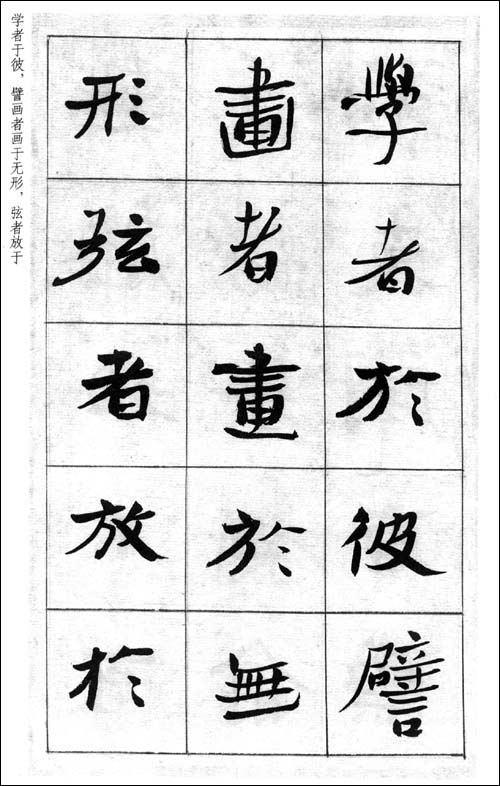 學者於彼譬
畫者畫於無
形弦者放於
学者于彼，譬画者画于无形，弦者放于